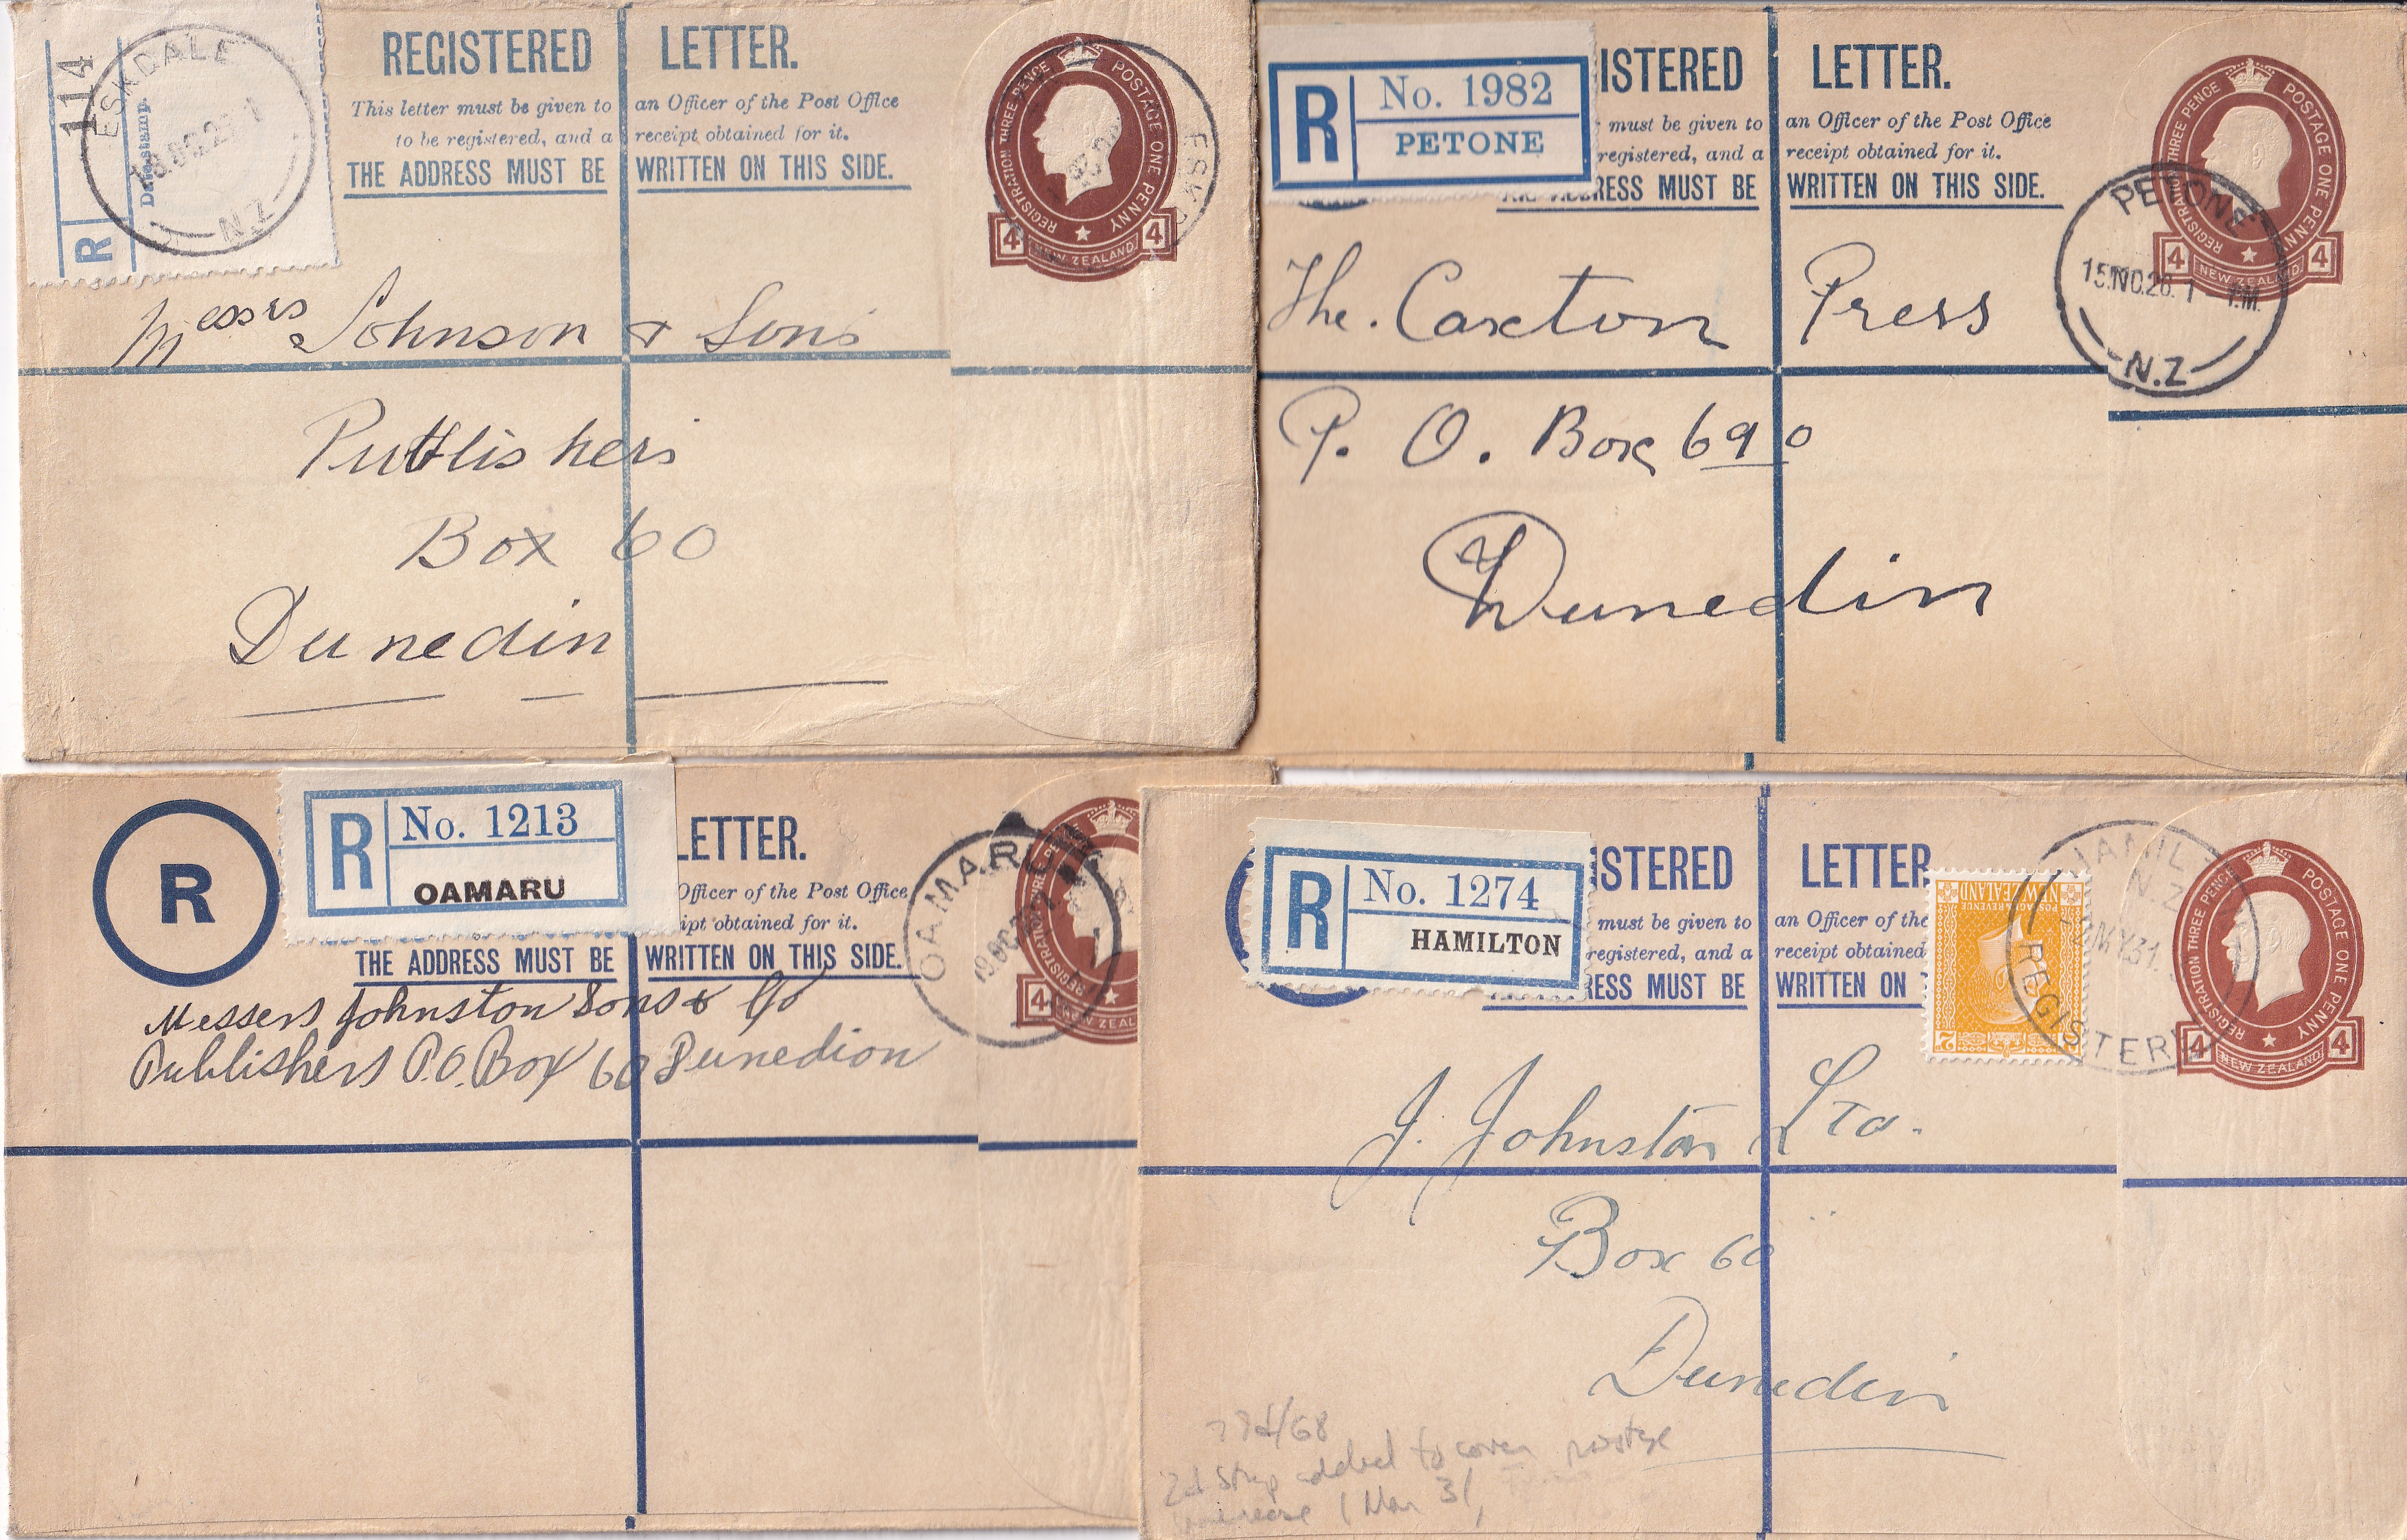 REGISTERED LETTER.
This letter must be given to an Officer of the Post Office
to be registered, and a receipt obtained for it.
THE ADDRESS MUST BE WRITTEN ON THIS SIDE.
114
R
Datestamp.
ESKDALE
N.Z
REGISTRATION THREE PENCE POSTAGE ONE PENNY
4 NEW ZEALAND 4
Messrs Johnson & Sons
Publishers
Box 60
Dunedin
R No. 1982
PETONE
ISTERED LETTER.
must be given to an Officer of the Post Office
registered, and a receipt obtained for it.
RESS MUST BE WRITTEN ON THIS SIDE.
REGISTRATION THREE PENCE POSTAGE ONE PENNY
4 NEW ZEALAND 4
PETONE
15 NO.26. 1 - P.M.
N.Z
The. Caxton Press
P. O. Box 690
Dunedin
R
R No. 1213
OAMARU
LETTER.
Officer of the Post Office
ipt obtained for it.
THE ADDRESS MUST BE WRITTEN ON THIS SIDE.
OAMARU
4 NEW ZEAL
Messers Johnston Sons & Co
Publishers P.O. Box 60 Dunedion
R No. 1274
HAMILTON
ISTERED LETTER
must be given to an Officer of the
registered, and a receipt obtained
RESS MUST BE WRITTEN ON T
NEW ZEALAND
POSTAGE & REVENUE
2
HAMILT
N.Z
MY 31
REGISTERY
REGISTRATION THREE PENCE POSTAGE ONE PENNY
4 NEW ZEALAND 4
J. Johnston Ltd.
Box 60
Dunedin
2d stamp added to cover postage
increase (Mar 31,